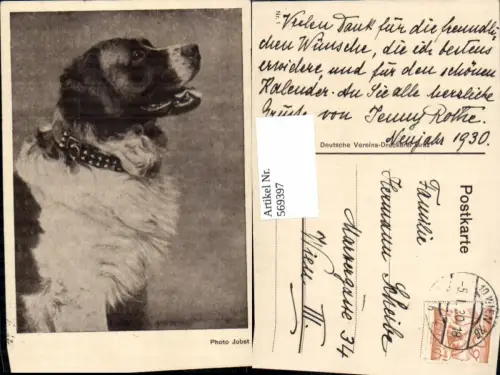 Photo Jobst
Nr. 1
Vielen Dank für die freundli-
chen Wünsche, die ich bestens
erwidere, und für den schönen
Kalender. An Sie alle herzliche
Grüße von Jenny Rothe.
Neujahr 1930.
Deutsche Vereins-Druckerei Graz
Artikel Nr.
569397
Postkarte
Familie
Hermann Scheibe
Wien III.
Marokkanergasse 34